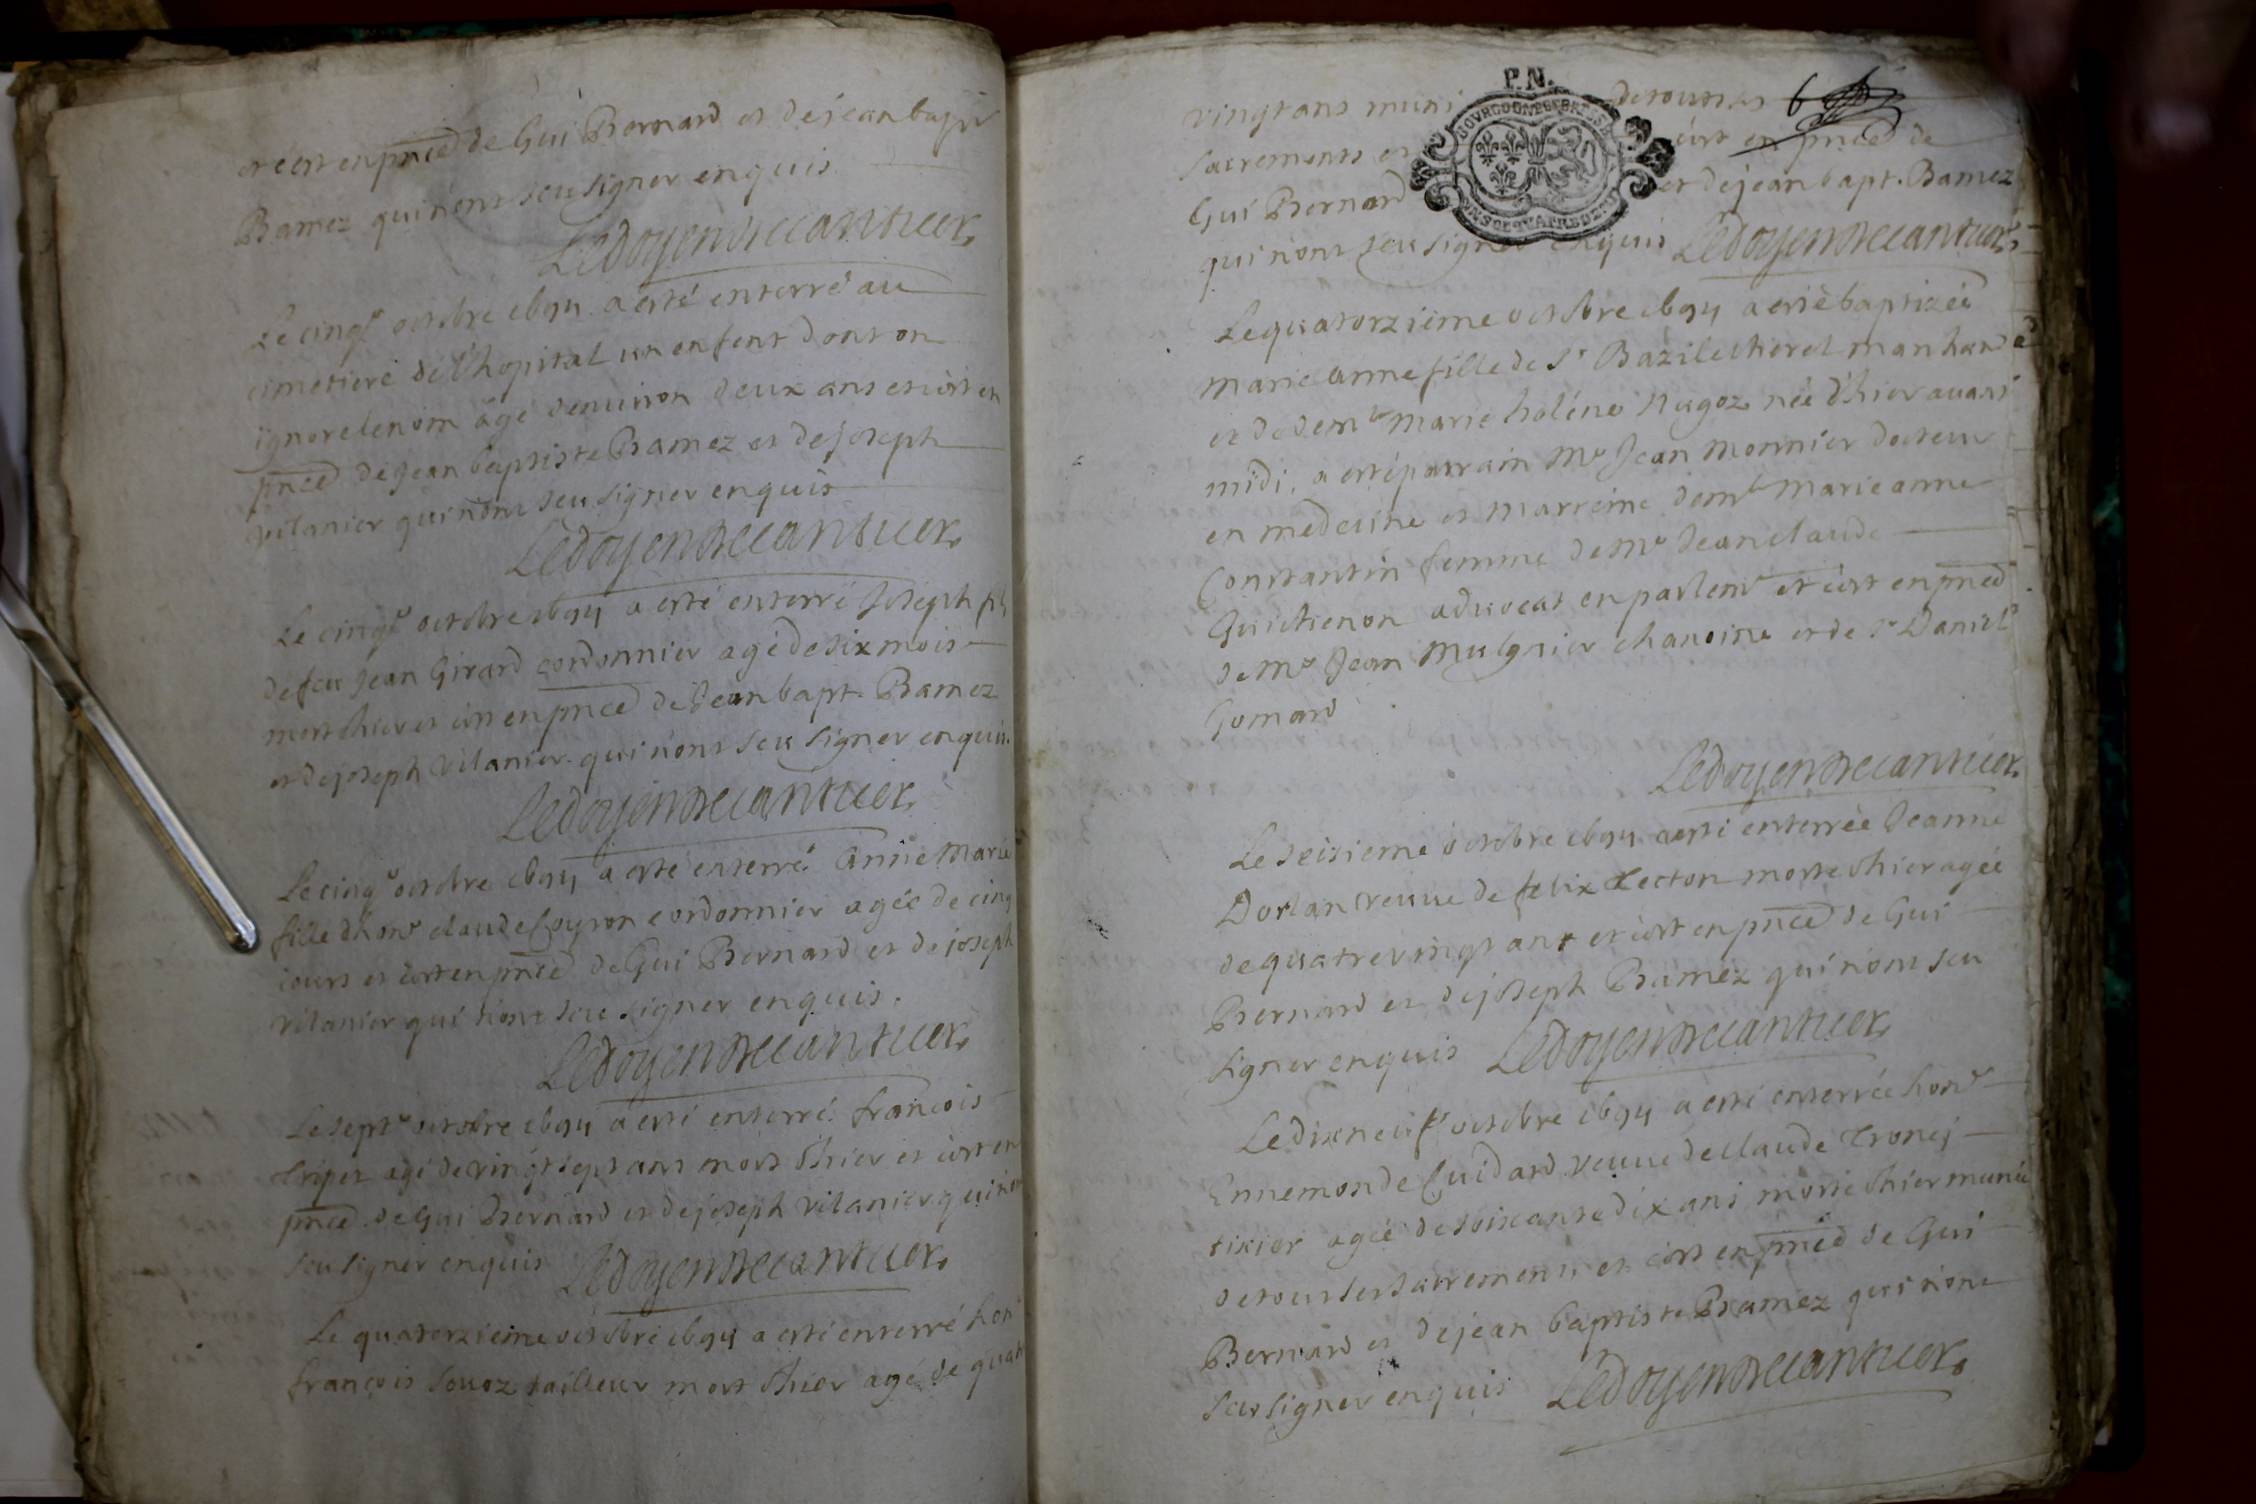 et c'est en pnce de Gui Bernard et de jean bapt
Bamez qui n'ont seu signer enquis
Ledoyen Decantuer
Le cinqe octobre 1694 a esté enterré au
cimetiere de l'hopital un enfent dont on
ignore le nom agé denuiron deux ans et c'est en
pnce de Jean baptiste Bamez et de joseph
vilanier qui n'ont seu signer enquis
Ledoyen Decantuer
Le cinqe octobre 1694 a esté enterré Joseph fils
de feu Jean Girard cordonnier agé de six mois
mort hier et c'est en pnce de Jean bapt. Bamez
et de joseph vilanier qui n'ont seu signer enquis.
Ledoyen Decantuer
Le cinqe octobre 1694 a esté enterré Anne Marie
fille d'hone claude Coyron cordonnier agée de cinq
iours et c'est en pnce de Gui Bernard et de joseph
vilanier qui n'ont seu signer enquis.
Ledoyen Decantuer
Le septe octobre 1694 a esté enterré francois
Tripez agé de vingt sept ans mort d'hier et c'est en
pnce de Gui Bernard et de joseph vilanier qui n'ont
seu signer enquis Ledoyen Decantuer
Le quatorzieme octobre 1694 a esté enterré hone
françois Souoz tailleur mort d'hier agé de quatre
P.N.
BOVRGOGNE BRESSE
vingt ans muni de tous les 6
sacrements et c'est en pnce de
Gui Bernard et de jean bapt. Bamez
qui n'ont seu signer enquis Ledoyen Decantuer
Le quatorzieme octobre 1694 a esté baptizée
Marie anne fille de Sr Bazile manhand
et de demle Marie heléne Nugoz née d'hier auant
midi, a esté parrain Mre Jean Monnier docteur
en medecine et marreine demle Marie anne
Constantin femme de Mre Jean claude
Guichenon aduocat en parlemt et c'est en pnce
de Mre Jean Mugnier chanoine et de Sr Daniel
Gomard
Ledoyen Decantuer
Le seisieme octobre 1694 a esté enterrée Jeanne
Dorlan veuue de felix Lecton morte d'hier agée
de quatre vingt ans et c'est en pnce de Gui
Bernard et de joseph Bamez qui n'ont seu
signer enquis Ledoyen Decantuer
Le dixneufe octobre 1694 a esté enterrée hone
Ennemonde Cuidard veuue de claude Troncy
tixier agée de soixante dix ans morte d'hier munie
de tous les sacrements et c'est en pnce de Gui
Bernard et de jean baptiste Bamez qui n'ont
seu signer enquis Ledoyen Decantuer